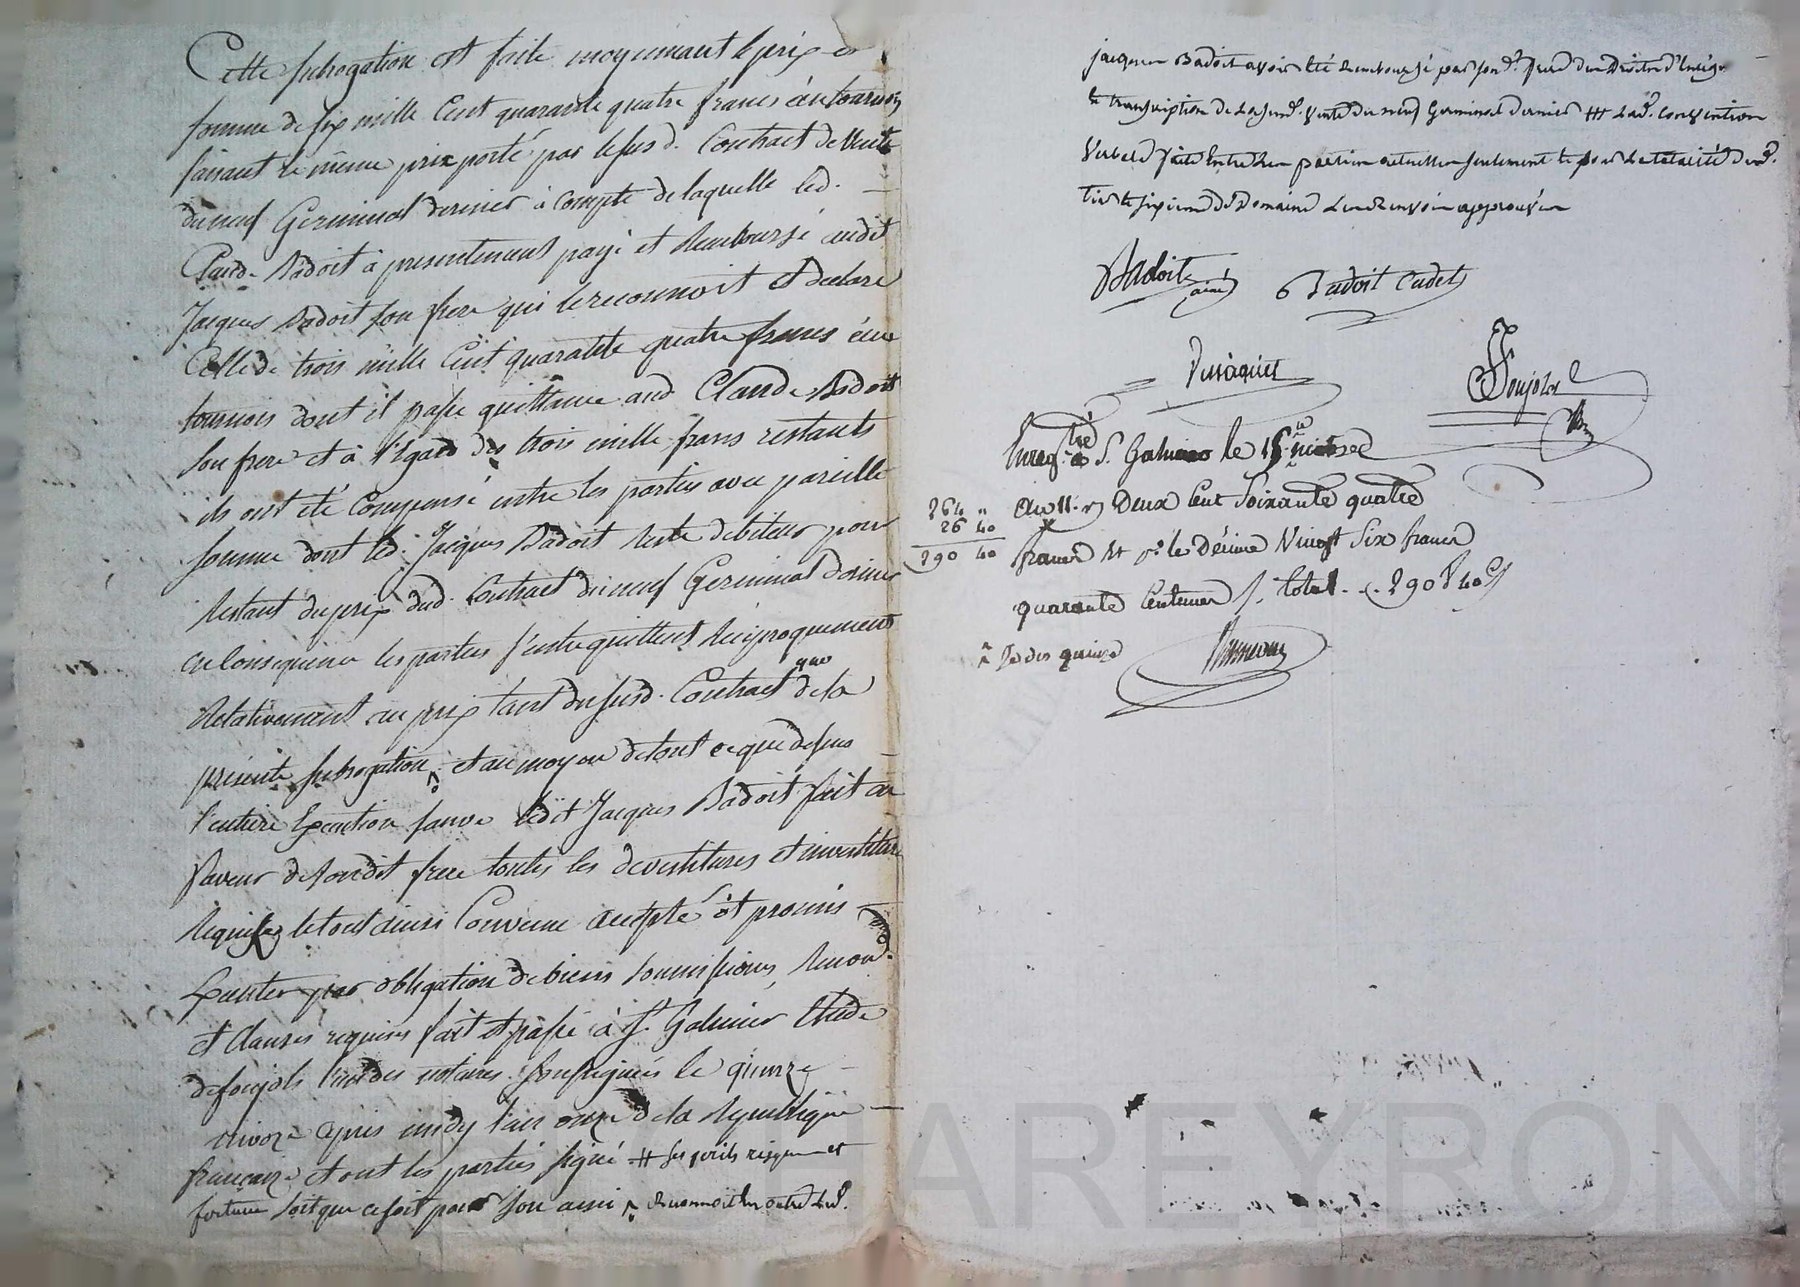 Cette subrogation est faite moyennant le prix et
somme de six mille Cent quarante quatre francs écus tournois
faisant le même prix porté par le susd. Contract de Vente
du neuf Germinal dernier à compte de laquelle led.
Claude Badoit à présentement payé et Remboursé audit
Jacques Badoit son frere qui le reconnoit et declare
Celle de trois mille Cent quarante quatre francs écus
tournois dont il passe quittance aud Claude Badoit
son frere et à l'égard des trois mille francs restants
ils ont été Compensé entre les parties avec pareille
somme dont led. Jacques Badoit Reste debiteur pour
Restant du prix dud. Contract du neuf Germinal dernier
en Consequence les parties s'entrequittent Réciproquement
que
Relativement au prix tant du susd. Contract de la
présente subrogation, et au moyen de tout ce que dessus
l'entiere Execution sauve ledit Jacques Badoit fait en
faveur de sondit frere toutes les devestitures et investitures
Requises le tout ainsi Convenu accepté et promis
Executer par obligation de biens soumissions, Renon.
et Clauses requises fait et passé à St. Galmier Etude
de Soujols l'un des notaires soussignés le quinze
nivoze après midy l'an onze de la République
française, et ont les parties signé # ses perils risques et
fortune soit que ce soit pour son ami
jacques Badoit avoir été Remboursé par son d. frere des Droits d'Enreg.
la transcription de la susd. vente du neuf Germinal dernier ### lad. convention
Verbale faite Entre les parties actuelles seulement et pour la totalité
Badoit ainé
Badoit Cadet
Soujols
Enreg.tré à S. Galmier le 15 nivose
an 11. r) Deux Cent Soixante quatre
264 "
26 40
290 40
francs Et pr. le Décime Vingt Six francs
quarante Centimes /. total .. (. 290 f 40 c)
CHAREYRON